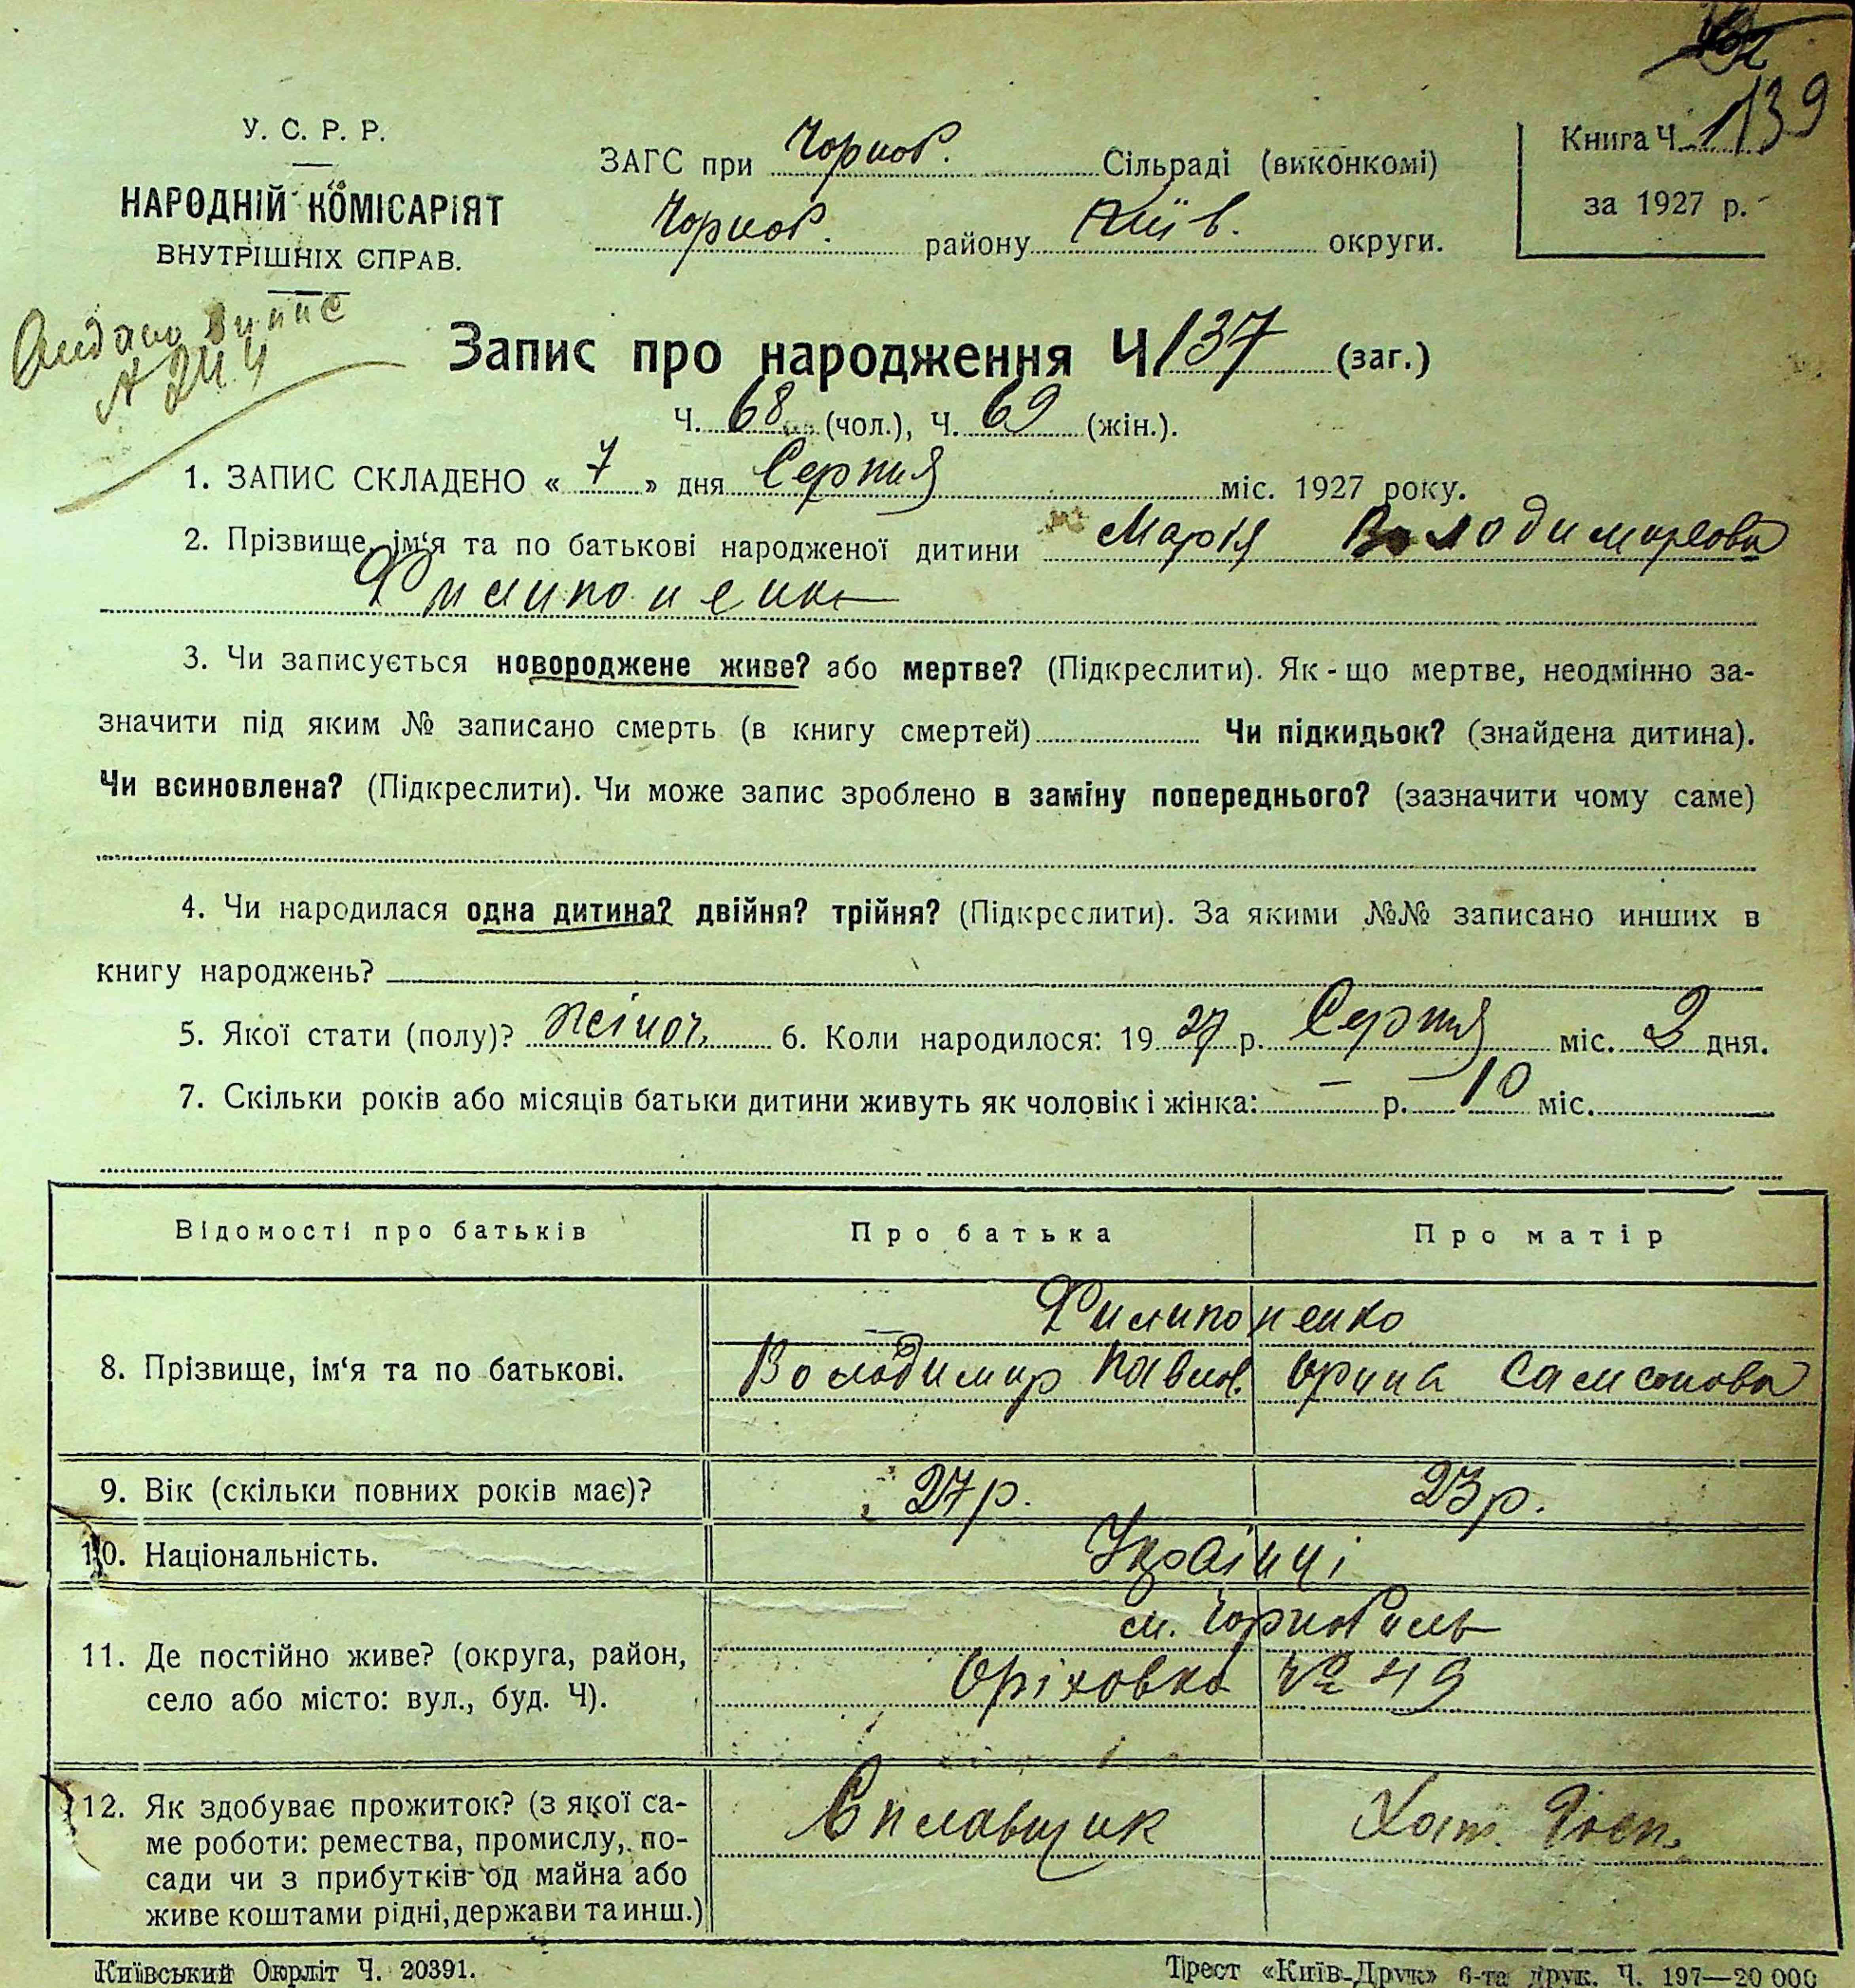 139
У. С. Р. Р.
НАРОДНІЙ КОМІСАРІЯТ
ВНУТРІШНІХ СПРАВ.
ЗАГС при Чорноб. Сільраді (виконкомі)
Чорноб. району Київ. округи.
Книга Ч.
за 1927 р.
Видано Випис
№ 244
Запис про народження Ч 137 (заг.)
Ч. 68 (чол.), Ч. 69 (жін.).
1. ЗАПИС СКЛАДЕНО « 7 » дня Серпня міс. 1927 року.
2. Прізвище, ім‘я та по батькові народженої дитини Марія Володимирова
Филипоненко
3. Чи записується новороджене живе? або мертве? (Підкреслити). Як-що мертве, неодмінно за-
значити під яким № записано смерть (в книгу смертей) Чи підкидьок? (знайдена дитина).
Чи всиновлена? (Підкреслити). Чи може запис зроблено в заміну попереднього? (зазначити чому саме)
4. Чи народилася одна дитина? двійня? трійня? (Підкреслити). За якими №№ записано инших в
книгу народжень?
5. Якої стати (полу)? жіноч. 6. Коли народилося: 19 27 р. Серпня міс. 2 дня.
7. Скільки років або місяців батьки дитини живуть як чоловік і жінка: — р. 10 міс.
Відомості про батьків Про батька Про матір
Филипоненко
8. Прізвище, ім‘я та по батькові. Володимир Павлов. Орина Самсонова
9. Вік (скільки повних років має)? 27 р. 23 р.
10. Національність. Українці
м. Чорнобиль
11. Де постійно живе? (округа, район,
село або місто: вул., буд. Ч). Оріховка № 49
12. Як здобуває прожиток? (з якої са-
ме роботи: ремества, промислу, по-
сади чи з прибутків од майна або
живе коштами рідні, держави та инш.)
Сплавщик Хат. Госп.
Київський Окрліт Ч. 20391.
Трест «Київ-Друк» 6-та друк. Ч. 197—20 000